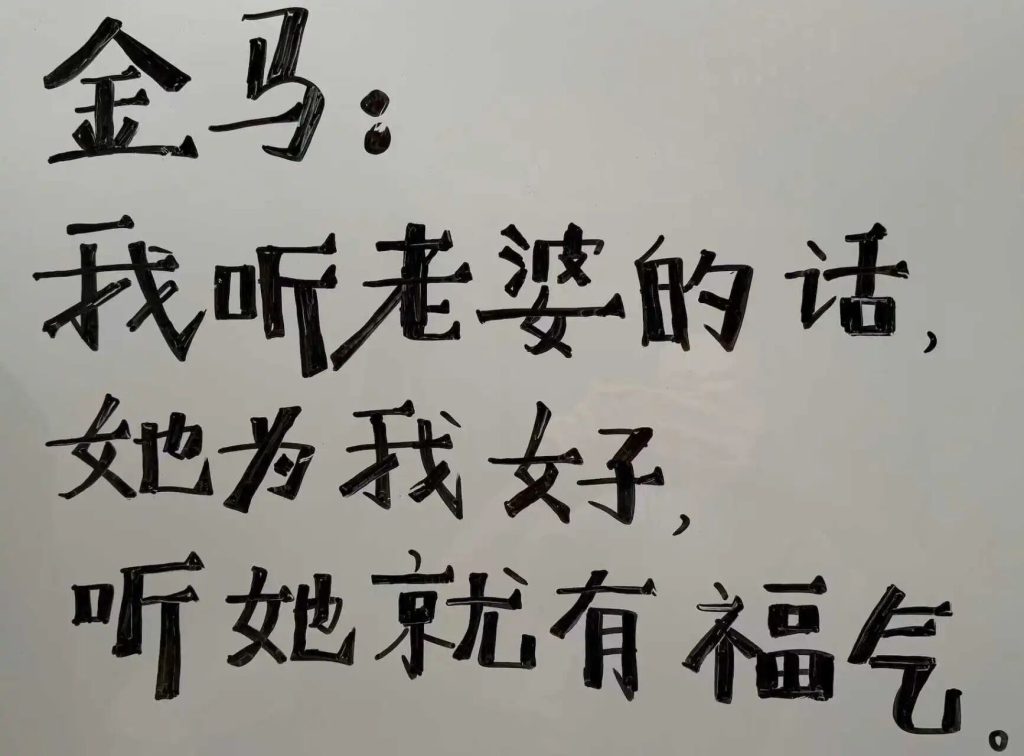 金马：
我听老婆的话，
她为我好，
听她就有福气。